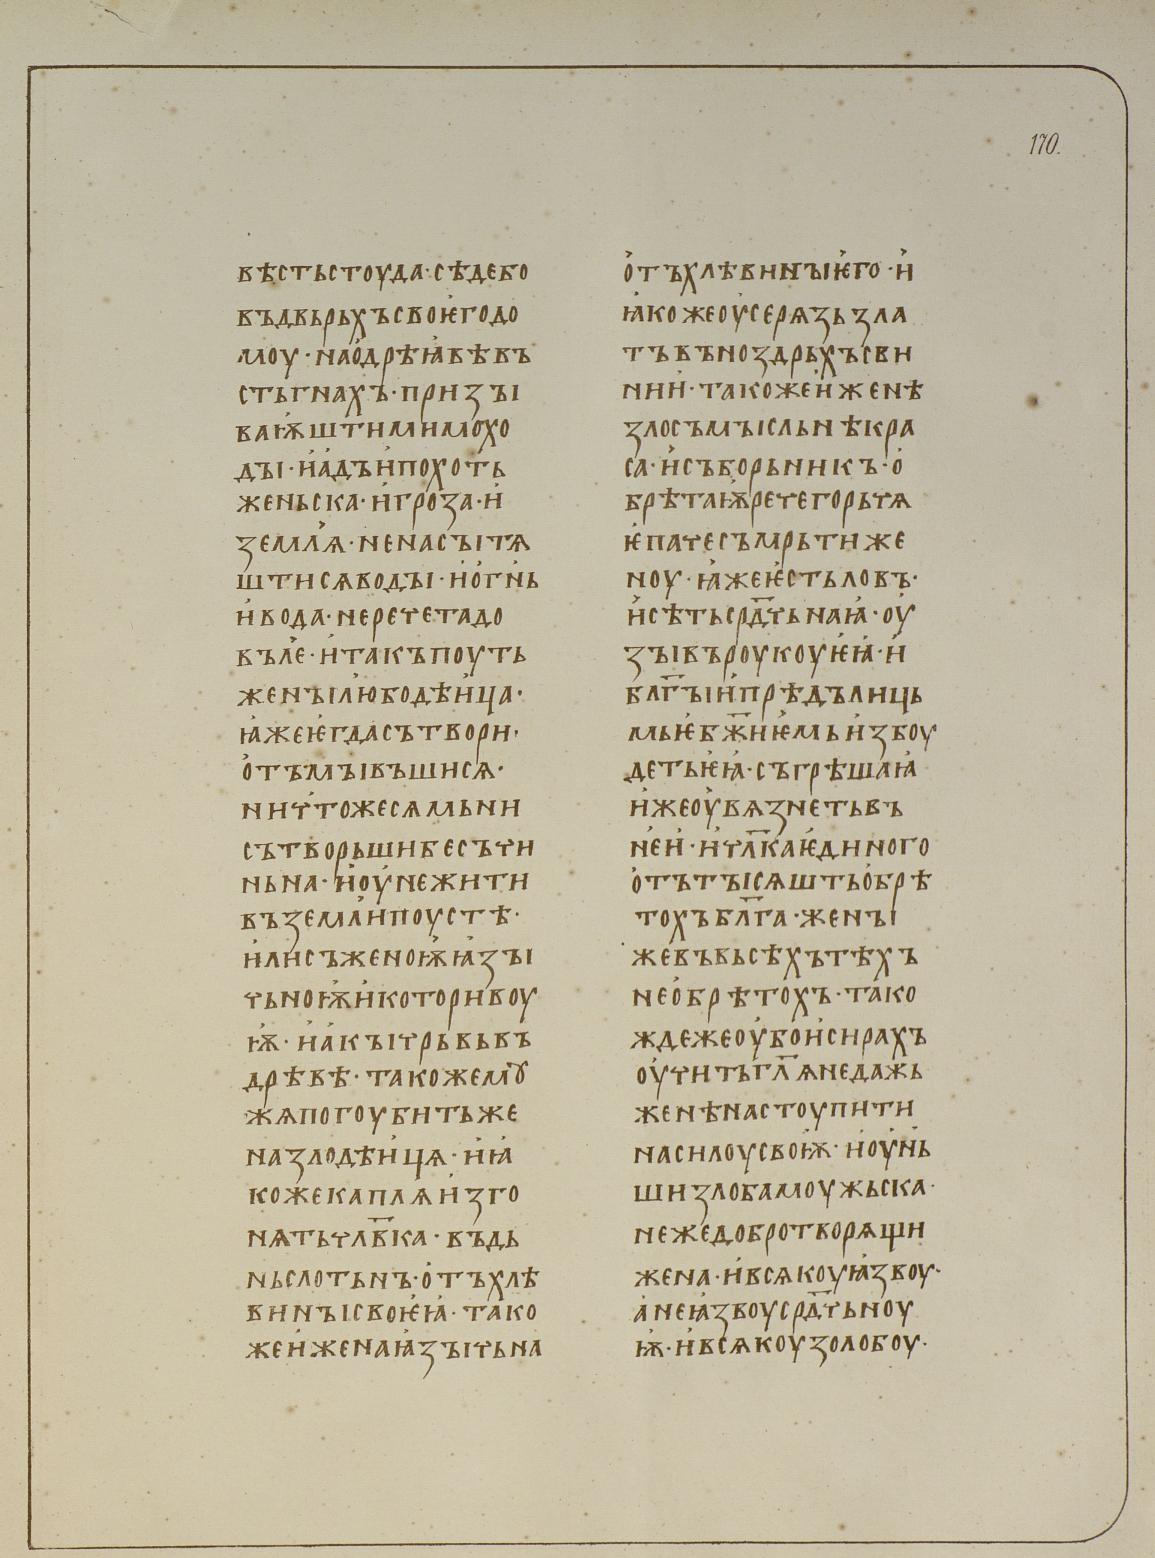 170.
вѣстьстоуда·сѣдебо
въдвьрьхъсвоѥгодо
моу·наодрѣꙗвѣвъ
стьгнахъ·призꙑ
ваѭштимимохо
дꙑ·иадъипохоть
женьска·игроза·и
землѧ·ненасꙑтѧ
штисѧводꙑ·иогнь
ивода·неречетадо
вълѣ·итакъпоуть
женꙑлюбодѣица·
ꙗжеѥгдасътвори·
отъмꙑвъшисѧ·
ничтожесѧмьни
сътворьшибесъчи
ньна·иоунежити
въземлипоустѣ·
илисъженоѭꙗзꙑ
чьноѭикоторивоу
ѭ·иакꙑчрьвьвъ
дрѣвѣ·такожемꙋ
жѧпогоубитьже
назлодѣицѧ·иꙗ
кожекаплѧизго
нѧтьчл҃вка·въдь
ньслотьнъ·отъхлѣ
винꙑсвоѥꙗ·тако
жеиженаꙗзꙑчьна
отъхлѣвинꙑѥго·и
ꙗкожеоусерѧзьзла
тъвъноздрьхъсви
нии·такожеиженѣ
злосъмꙑсльнѣкра
са·исъборьникъ·о
брѣтаѭречегорьчѧ
ѥпачесъмрьтиже
ноу·ꙗжеѥстьловъ·
исѣтьсрд҃чьнаꙗ·оу
зꙑвъроукоуѥꙗ·и
блг҃ꙑипрѣдълиць
мьѥбж҃иѥмьизбоу
детьѥꙗ·съгрѣшаꙗ
ижеоувѧзнетьвъ
неи·ичл҃каѥдиного
отътꙑсѧштьобрѣ
тохъбл҃га·женꙑ
жевъвьсѣхътѣхъ
необрѣтохъ·тако
ждежеоубоисирахъ
оучитьгл҃ѧнедажь
женѣнастоупити
насилоусвоѭ·иоунь
шизлобамоужьска·
нежедобротворѧщи
жена·ивсѧкоуꙗзвоу·
анеꙗзвоусрд҃чьноу
ѭ·ивсѧкоузолобоу·